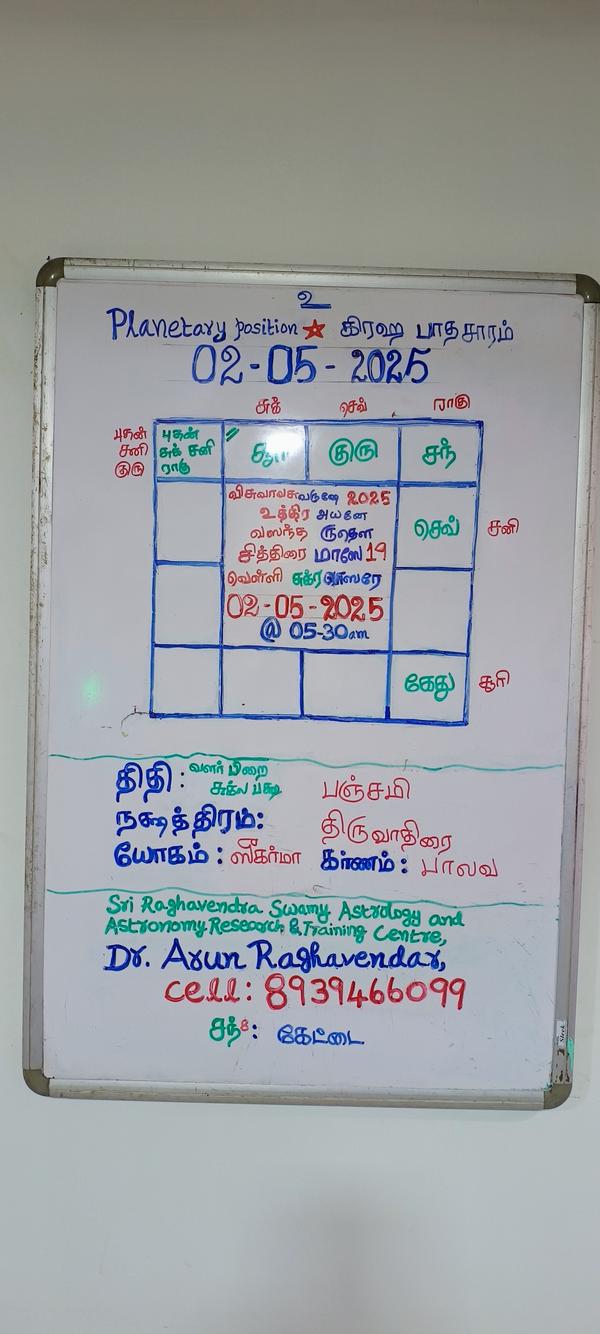 உ
Planetary position ★ கிரஹ பாதசாரம்
02-05-2025
சுக் செவ் ராகு
புதன்
சனி
குரு
புதன்
சுக் சனி
ராகு
சூரி
குரு
சந்
செவ்
சனி
விசுவாவசுவருஷே 2025
உத்திர அயனே
வஸந்த ருதௌ
சித்திரை மாஸே 19
வெள்ளி சுக்ரவாஸரே
02-05-2025
@ 05-30am
கேது
சூரி
திதி : வளர் பிறை
சுக்ல பக்ஷ
பஞ்சமி
நக்ஷத்திரம்:
திருவாதிரை
யோகம் : ஸீகர்மா கர்ணம் : பாலவ
Sri Raghavendra Swamy Astrology and
Astronomy Research & Training Centre,
Dr. Arun Raghavendar,
Cell: 8939466099
சந்8: கேட்டை